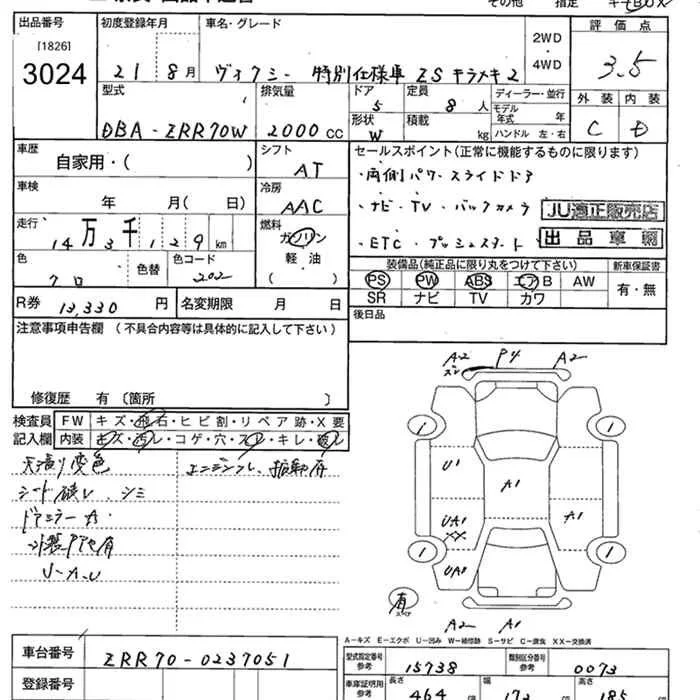 出品番号 初度登録年月 車名・グレード 2WD・4WD 評価点
[1826]
3024 21 8月 ヴォクシー 特別仕様車 ZS キラメキ2 3.5
型式 排気量 ドア 5 定員 8人 ディーラー・並行 外装 内装
DBA-ZRR70W 2000cc 形状 W 積載 kg モデル年式 年 ハンドル 左・右 C D
車歴 シフト セールスポイント(正常に機能するものに限ります)
自家用・( ) AT ・両側パワースライドドア
車検 冷房 ・ナビ・TV・バックカメラ JU適正販売店
年 月(日) AAC ・ETC・プッシュスタート 出品車輌
走行 燃料
14万3千129km ガソリン
色 色替 色コード 軽油 装備品(純正品に限り丸をつけて下さい) 新車保証書
クロ 202 ( ) PS PW ABS エアB AW 有・無
R券 13,330円 名変期限 月 日 SR ナビ TV カワ
注意事項申告欄(不具合内容等は具体的に記入して下さい) 後日品
修復歴 有〔箇所 〕
検査員 FW キズ・飛石・ヒビ割・リペア跡・X要
記入欄 内装 キズ・汚レ・コゲ・穴・スレ・キレ・破レ
天張り変色 振動有
シート破レ、シミ
ドアミラーA
外装PP他有
U-A.U
A2 P4 A2
1 1
U1 A1
UA1 XX A1
1 1
UA1
有 スペア
A2 A1
A-キズ E-エクボ U-凹み W-補修跡 S-サビ C-腐食 XX-交換済
車台番号 ZRR70-0237051 型式指定番号 参考 15738 類別区分番号 参考 0073
登録番号 車庫証明用 参考 長さ 464 幅 172 高さ 185